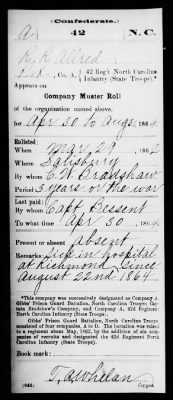 (Confederate.)
A. 42 N.C.
R. R. Allred
Co. A, 42 Reg't North Carolina Infantry (State Troops).*
Appears on
Company Muster Roll
of the organization named above,
for Apr 30 to Aug 31, 1864.
Enlisted:
When Mar 29, 1862
Where Salisbury
By whom C. N. Bradshaw
Period 3 years or the war
Last paid:
By whom Capt. Bessent
To what time Apr 30, 1864.
Present or absent absent
Remarks: Sick in hospital
at Richmond since
August 22nd 1864
*This company was successively designated as Company A
Gibbs' Prison Guard Battalion, North Carolina Troops; Captain Bradshaw's Company, and Company A, 42d Regiment North Carolina Infantry (State Troops).
Gibbs' Prison Guard Battalion, North Carolina Troops,
consisted of four companies, A to D. The battalion was raised to
a regiment about May, 1862, by the addition of six companies of recruits and designated the 42d Regiment North
Carolina Infantry (State Troops).
Book mark:
T. A. Whelan
(642) Copyist.